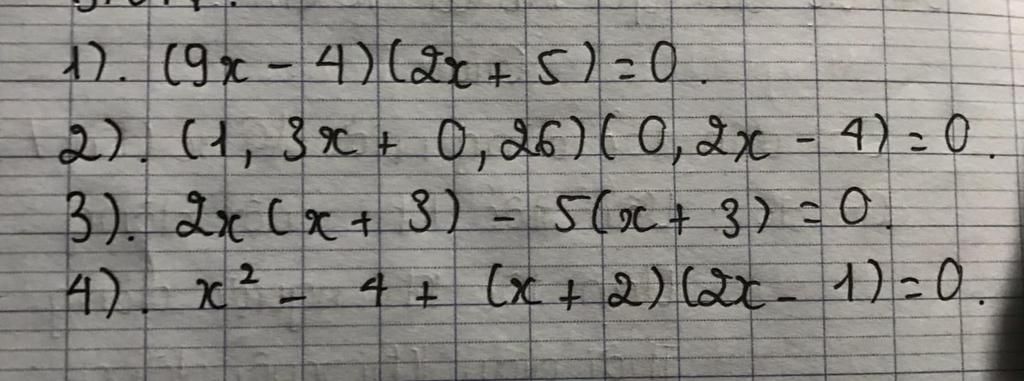 1). (9x - 4)(2x + 5) = 0.
2). (1,3x + 0,26)(0,2x - 4) = 0.
3). 2x(x + 3) - 5(x + 3) = 0.
4). x² - 4 + (x + 2)(2x - 1) = 0.